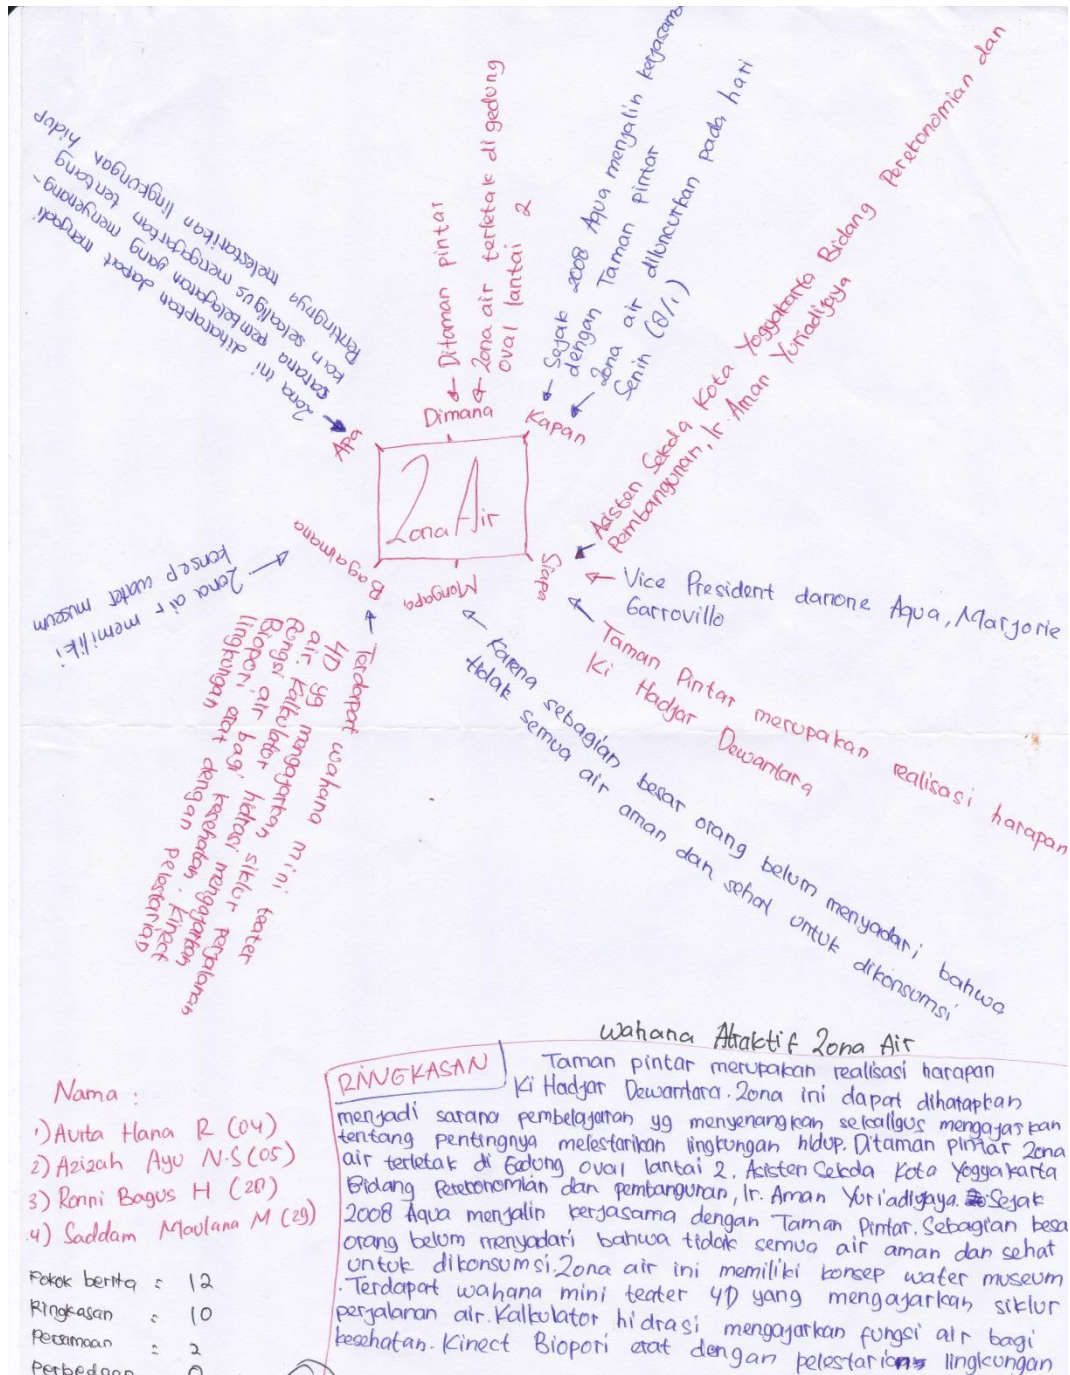 Zona Air
Apa
Zona ini diharapkan dapat menjadi
sarana pembelajaran yang menyenang-
kan sekaligus mengajarkan tentang
Pentingnya melestarikan lingkungan hidup
Dimana
Ditaman pintar
Zona air terletak di gedung
oval lantai 2
Kapan
Sejak 2008 Aqua menjalin kerjasama
dengan Taman pintar
Zona air diluncurkan pada hari
Senin (8/1)
Siapa
Asisten Sekda Kota Yoggakarta Bidang Perekonomian dan
Pembangunan, Ir. Aman Yuriadijaya
Vice President danone Aqua, Marjorie
Garrovillo
Taman Pintar merupakan realisasi harapan
Ki Hadjar Dewantara
Mengapa
Karena sebagian besar orang belum menyadari bahwa
tidak semua air aman dan sehat untuk dikonsumsi
Bagaimana
Zona air memiliki
konsep water museum
Terdapat wahana mini teater
4D yg mengajarkan siklur perjalanan
air. Kalkulator hidrasi mengajarkan
fungsi air bagi kesehatan. Kinect
Biopori erat dengan pelestarian
lingkungan
Wahana Atraktif Zona Air
RINGKASAN
Taman pintar merupakan realisasi harapan
Ki Hadjar Dewantara. Zona ini dapat diharapkan
menjadi sarana pembelajaran yg menyenangkan sekaligus mengajarkan
tentang pentingnya melestarikan lingkungan hidup. Ditaman pintar Zona
air terletak di Gedung oval lantai 2. Asisten Sekda Kota Yogyakarta
Bidang Perekonomian dan pembangunan, Ir. Aman Yuriadijaya. Sejak
2008 Aqua menjalin kerjasama dengan Taman Pintar. Sebagian besa
orang belum menyadari bahwa tidak semua air aman dan sehat
untuk dikonsumsi. Zona air ini memiliki konsep water museum
. Terdapat wahana mini teater 4D yang mengajarkan siklur
perjalanan air. Kalkulator hidrasi mengajarkan fungsi air bagi
kesehatan. Kinect Biopori erat dengan pelestarian lingkungan
Nama :
1) Avita Hana R (04)
2) Azizah Ayu N.S (05)
3) Ronni Bagus H
4) Saddam Maulana M (29)
Pokok berita : 12
Ringkasan : 10
Persamaan : 2
Perbedaan